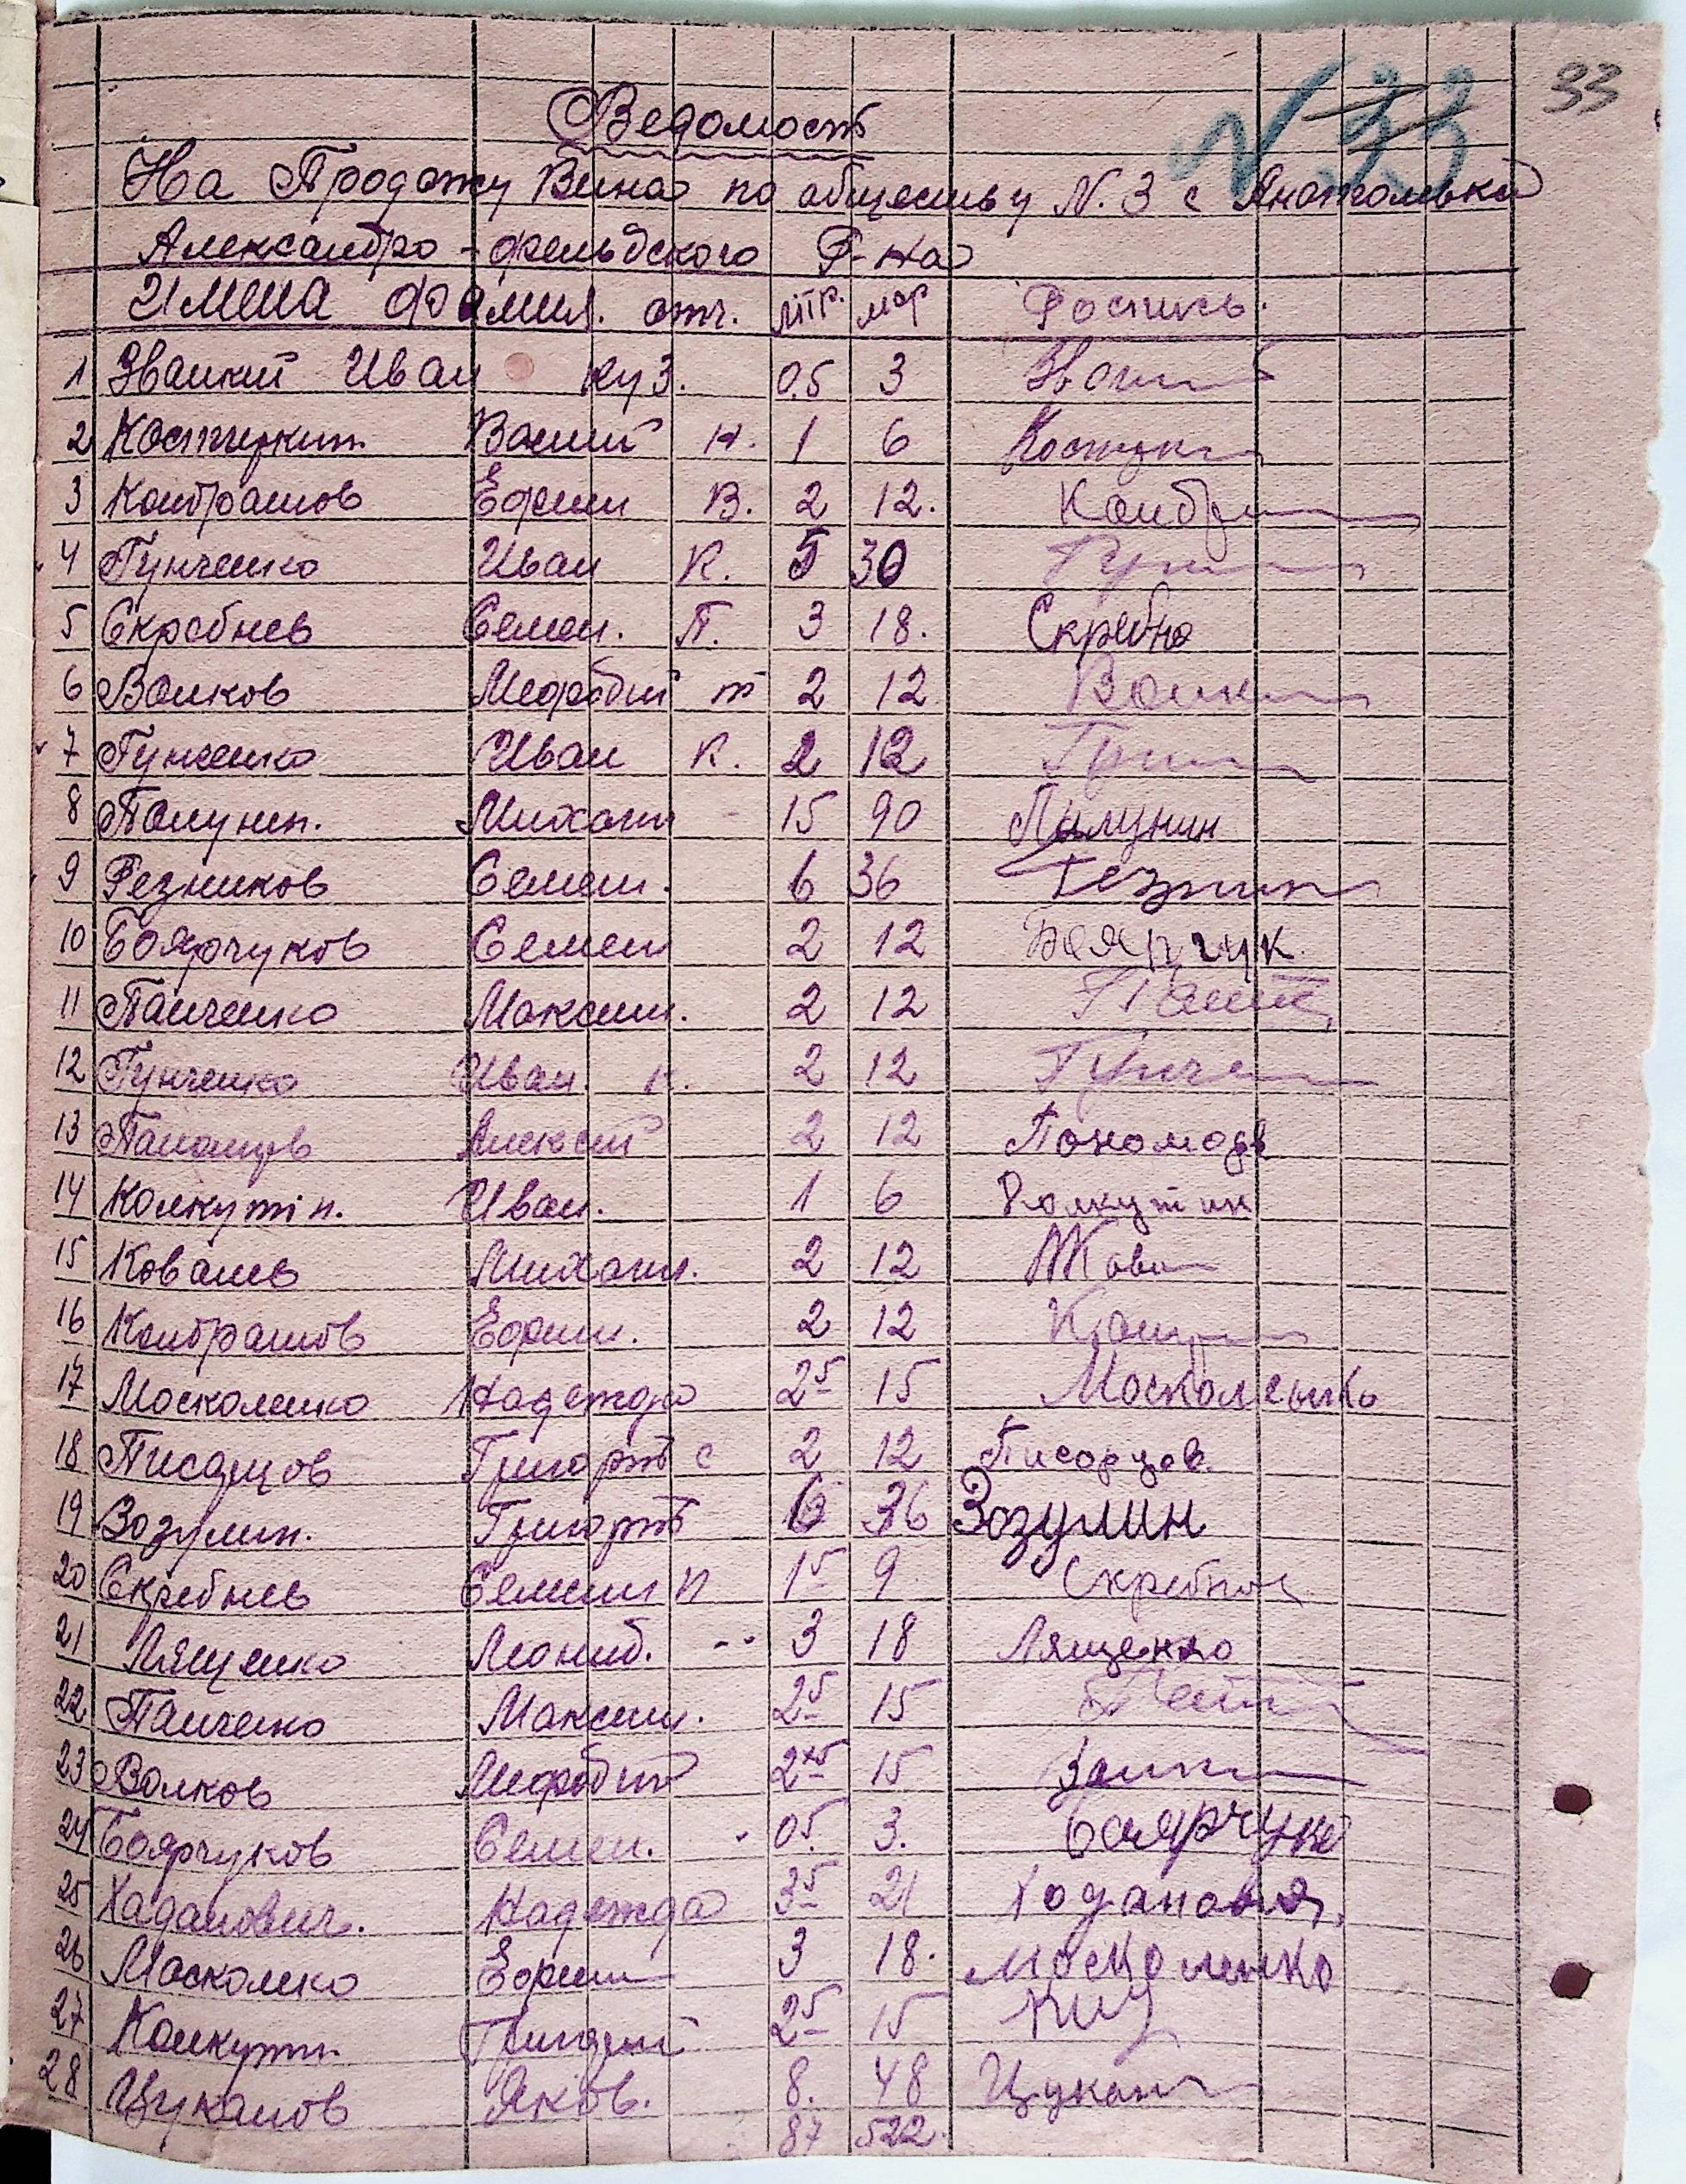 33
N 33
Ведомость
На Продажу Вина по обществу N. 3 с Анатольевка
Александро-фельдского Р-на
Имена фамил. отч. литр. мар Роспись.
1 Званский Иван Куз. 0.5 3
2 Костыркин Васили Н. 1 6
3 Кондрашов Ефим В. 2 12. Кондр
4 Гунченко Иван К. 5 30 Гун
5 Скребнев Семен. П. 3 18. Скребне
6 Волков Мефодий т 2 12 Волк
7 Гунченко Иван К. 2 12
8 Полунин. Михаил - 15 90 Палунин
9 Резников Семен. 6 36 Резник
10 Боярчуков Семен 2 12 Боярчук.
11 Панченко Максим. 2 12
12 Гунченко Иван К. 2 12 Гунче
13 Алексей 2 12 Пономорев
14 Колкутин. Иван. 1 6 Колкутин
15 Ковалев Михаил. 2 12 МКова
16 Кондрашов Ефим. 2 12
17 Москаленко Надежда 25 15 Москаленко
18 Писарцов Григорий с 2 12 Писорцов.
19 Возулин. Григорий 6 36 Зозулин
20 Скребнев Семен П 15 9 Скребнов
21 Лященко Леонид. -- 3 18 Лященко
22 Панченко Максим. 25 15
23 Волков Мефодий 25 15
24 Боярчуков Семен. 05. 3. боярчуко
25 Хаданович. Надежда 35 21 Ходанович.
26 Москаленко Ефим 3 18. москаленко
27 Колкутин Григорий 25 15
28 Цуканов Яков. 8. 48 Цукан
87 522.